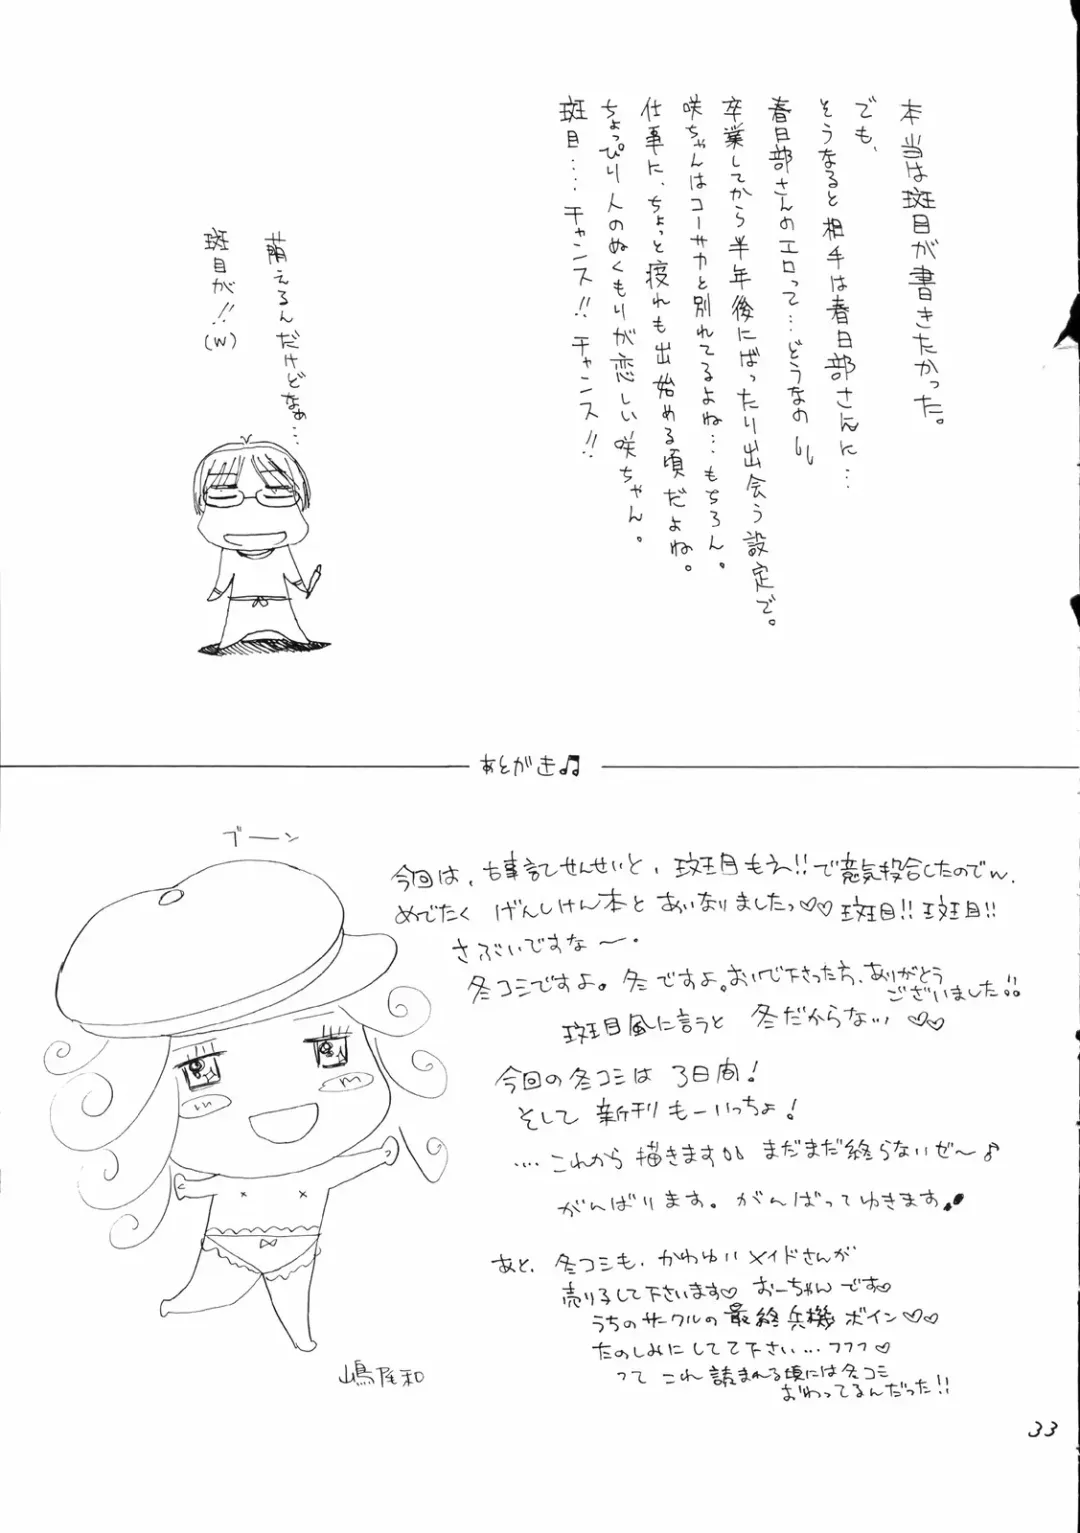 本当は斑目が書きたかった。
でも、
そうなると相手は春日部さんに…
春日部さんのエロって…どうなの
卒業してから半年後にばったり出会う設定で。
咲ちゃんはコーサカと別れてるよね…もちろん。
仕事に、ちょっと疲れも出始める頃だよね。
ちょっぴり人のぬくもりが恋しい咲ちゃん。
斑目…チャンス!!チャンス!!
萌えるんだけどなぁ…
斑目が!!
(W)
あとがき♫
ブーン
今回は、古事記せんせいと、斑目もえ!!で意気投合したのでw.
めでたく げんしけん本と あいなりましたっ♡♡ 斑目!! 斑目!!
さぶいですな〜・
冬コミですよ。冬ですよ。おいで下さった方、ありがとう
ございました!!
斑目風に言うと 冬だからな… ♡♡
今回の冬コミは 3日間!
そして 新刊もーいっちょ!
…これから描きます まだまだ終らないぜ〜♪
がんばります。がんばってゆきます
あと、冬コミも、かわゆいメイドさんが
売り子して下さいます♡ おーちゃんです♡
うちのサークルの最終兵機 ボイン♡♡
たのしみにしてて下さい…フフフ♡
ってこれ読まれる頃には冬コミ
おわってるんだった!!
嶋尾和
33